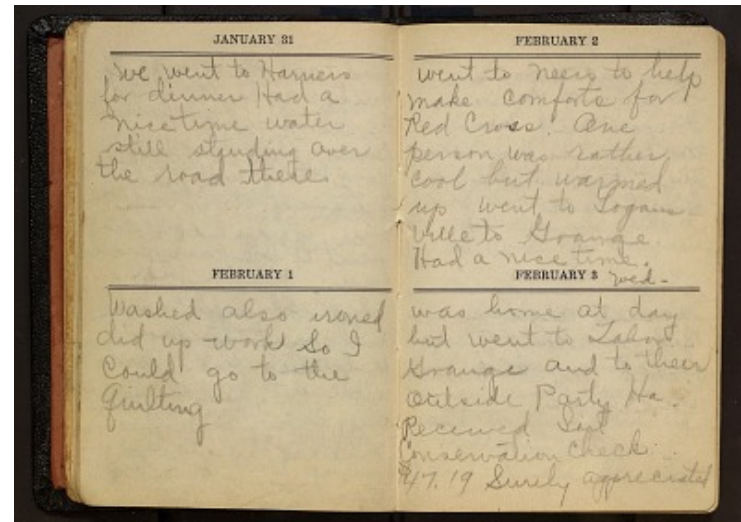 JANUARY 31
We went to Harners
for dinner Had a
nice time water
still standing over
the road there.
FEBRUARY 1
Washed also ironed
did up work So I
could go to the
Quilting
FEBRUARY 2
went to Neers to help
make comforts for
Red Cross. One
person was rather
cool but warmed
up went to Logans
ville to Grange.
Had a nice time.
FEBRUARY 3 Wed-
was home at day
but went to
Grange and to their
outside Party Ha.
Received Soil
Conservation check
47.19 Surely appreciated